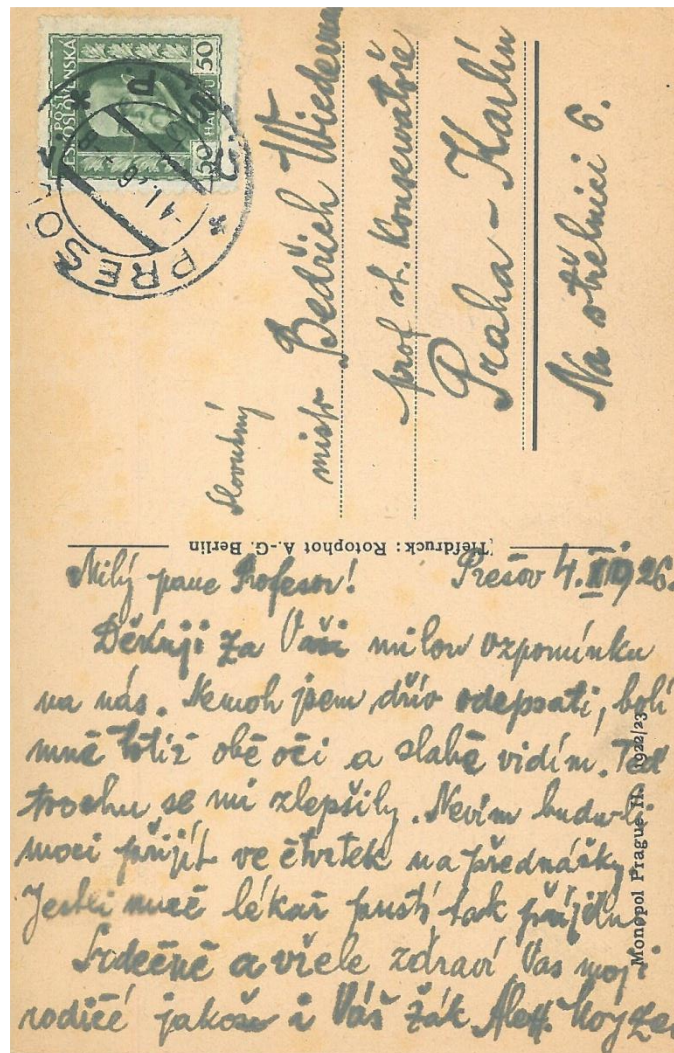 POŠTA
ČESKOSLOVENSKÁ
50 HALÉŘŮ 50
PREŠOV
Slovutný
mistr Bedřich Wiederman
prof st. Konservatoře
Praha - Karlín
Na střelnici 6.
Tiefdruck: Rotophot A.-G. Berlin
Monopol Prague H. 1922/23
Milý pane Profesor! Prešov 4. 1926.
Děkuji za Vaši milou vzpomínku
na nás. Nemoh jsem dřív odepsati, bolí
mně totiž obě oči a slabě vidím. Teď
trochu se mi zlepšily. Nevím budu-li
moci přijít ve čtvrtek na přednášky.
Jestli mně lékař pustí tak přijdu.
Srdečně a vřele zdraví Vas moji
rodičé jakož i Váš žák